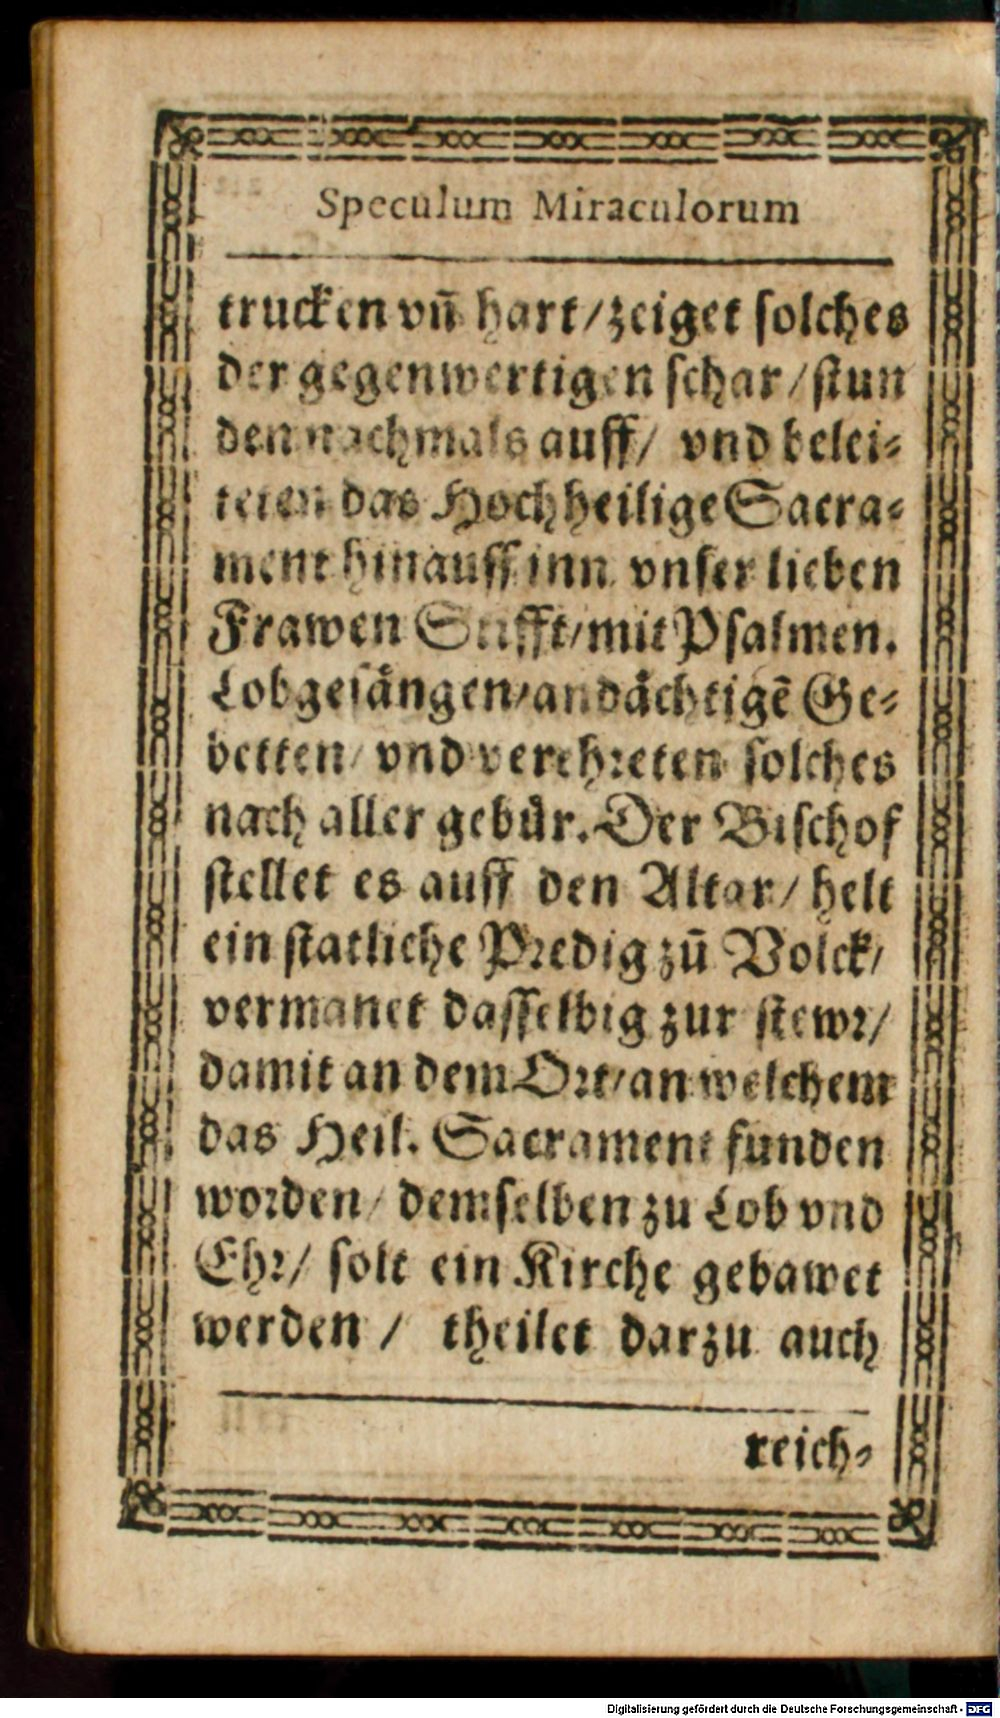 Speculum Miraculorum
trucken vn̄ hart/zeiget solches
der gegenwertigen schar/stun
den nachmals auff/ vnd belei-
teten das Hochheilige Sacra-
ment hinauff inn vnser lieben
Frawen Stifft/mit Psalmen.
Lobgesängen/andächtigē Ge-
betten/ vnd verehreten solches
nach aller gebür. Der Bischof
stellet es auff den Altar/ helt
ein statliche Predig zū Volck/
vermanet dasselbig zur stewr/
damit an dem Ort/an welchem
das Heil. Sacrament funden
worden/ demselben zu Lob vnd
Ehr/ solt ein Kirche gebawet
werden / theilet darzu auch
reich-
Digitalisierung gefördert durch die Deutsche Forschungsgemeinschaft - DFG